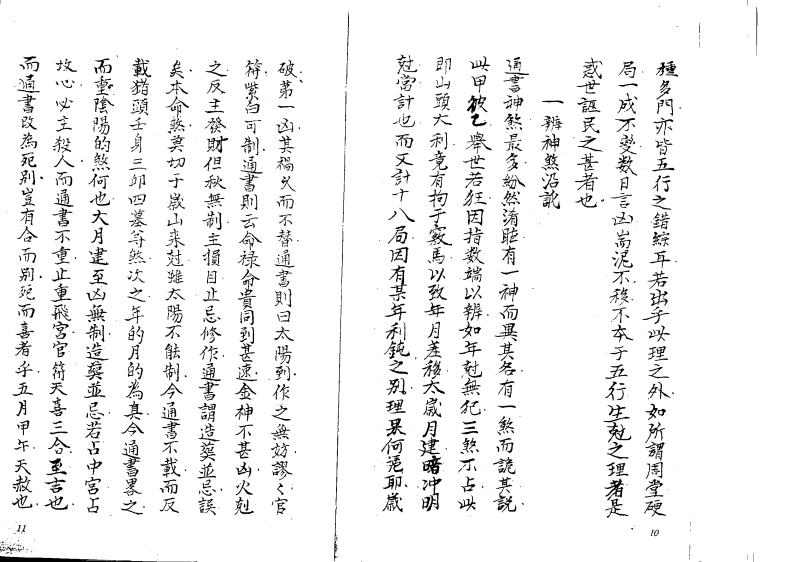 種多門亦皆五行之錯綜耳若出乎此理之外如所謂周堂硬
局一成不變数日言凶崗泥不移不本于五行生尅之理者是
惑世誣民之甚者也
一辨神煞沿訛
通書神煞最多紛然淆䀲有一神而異其名有一煞而詭其説
此甲彼乙舉世若狂因指数端以辨如年尅無犯三煞不占此
即山頭大利竟有拘于竅馬以致年月差移太歲月建暗冲明
尅當計也而又計十八局因有某年利鈍之别理果何説耶歲
破第一凶其禍久而不替通書則曰太陽到作之無妨謬々官
符紫白可制通書則云命禄命貴同到甚速金神不甚凶火剋
之反主發財但秋無制主損目止忌修作通書謂造葬並忌誤
矣本命煞莫切于歲山来尅雖太陽不能制今通書不載而反
載猪頭壬身三卯四墓等煞次之年的月的為真今通書畧之
而重陰陽的煞何也大月建至凶無制造葬並忌若占中宮占
坟心必主殺人而通書不重止重飛宮官符天喜三合至吉也
而通書改為死别豈有合而别死而喜者乎五月甲午天赦也
10
11